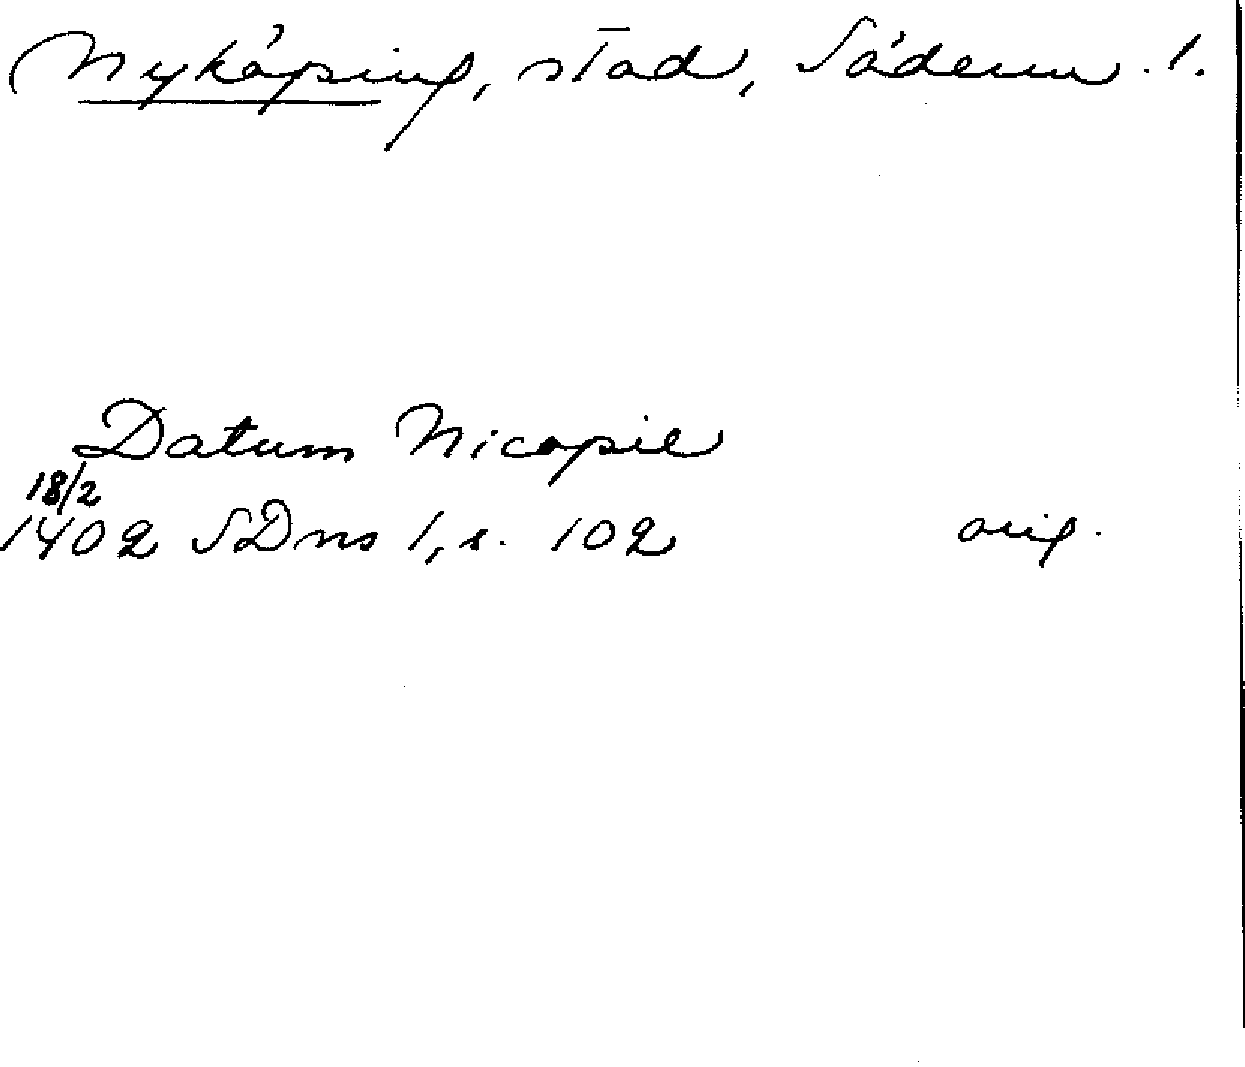 Nyköping, stad, Söderm. l.
Datum Nicopie
18/2
1402 SDns 1, s. 102 orig.